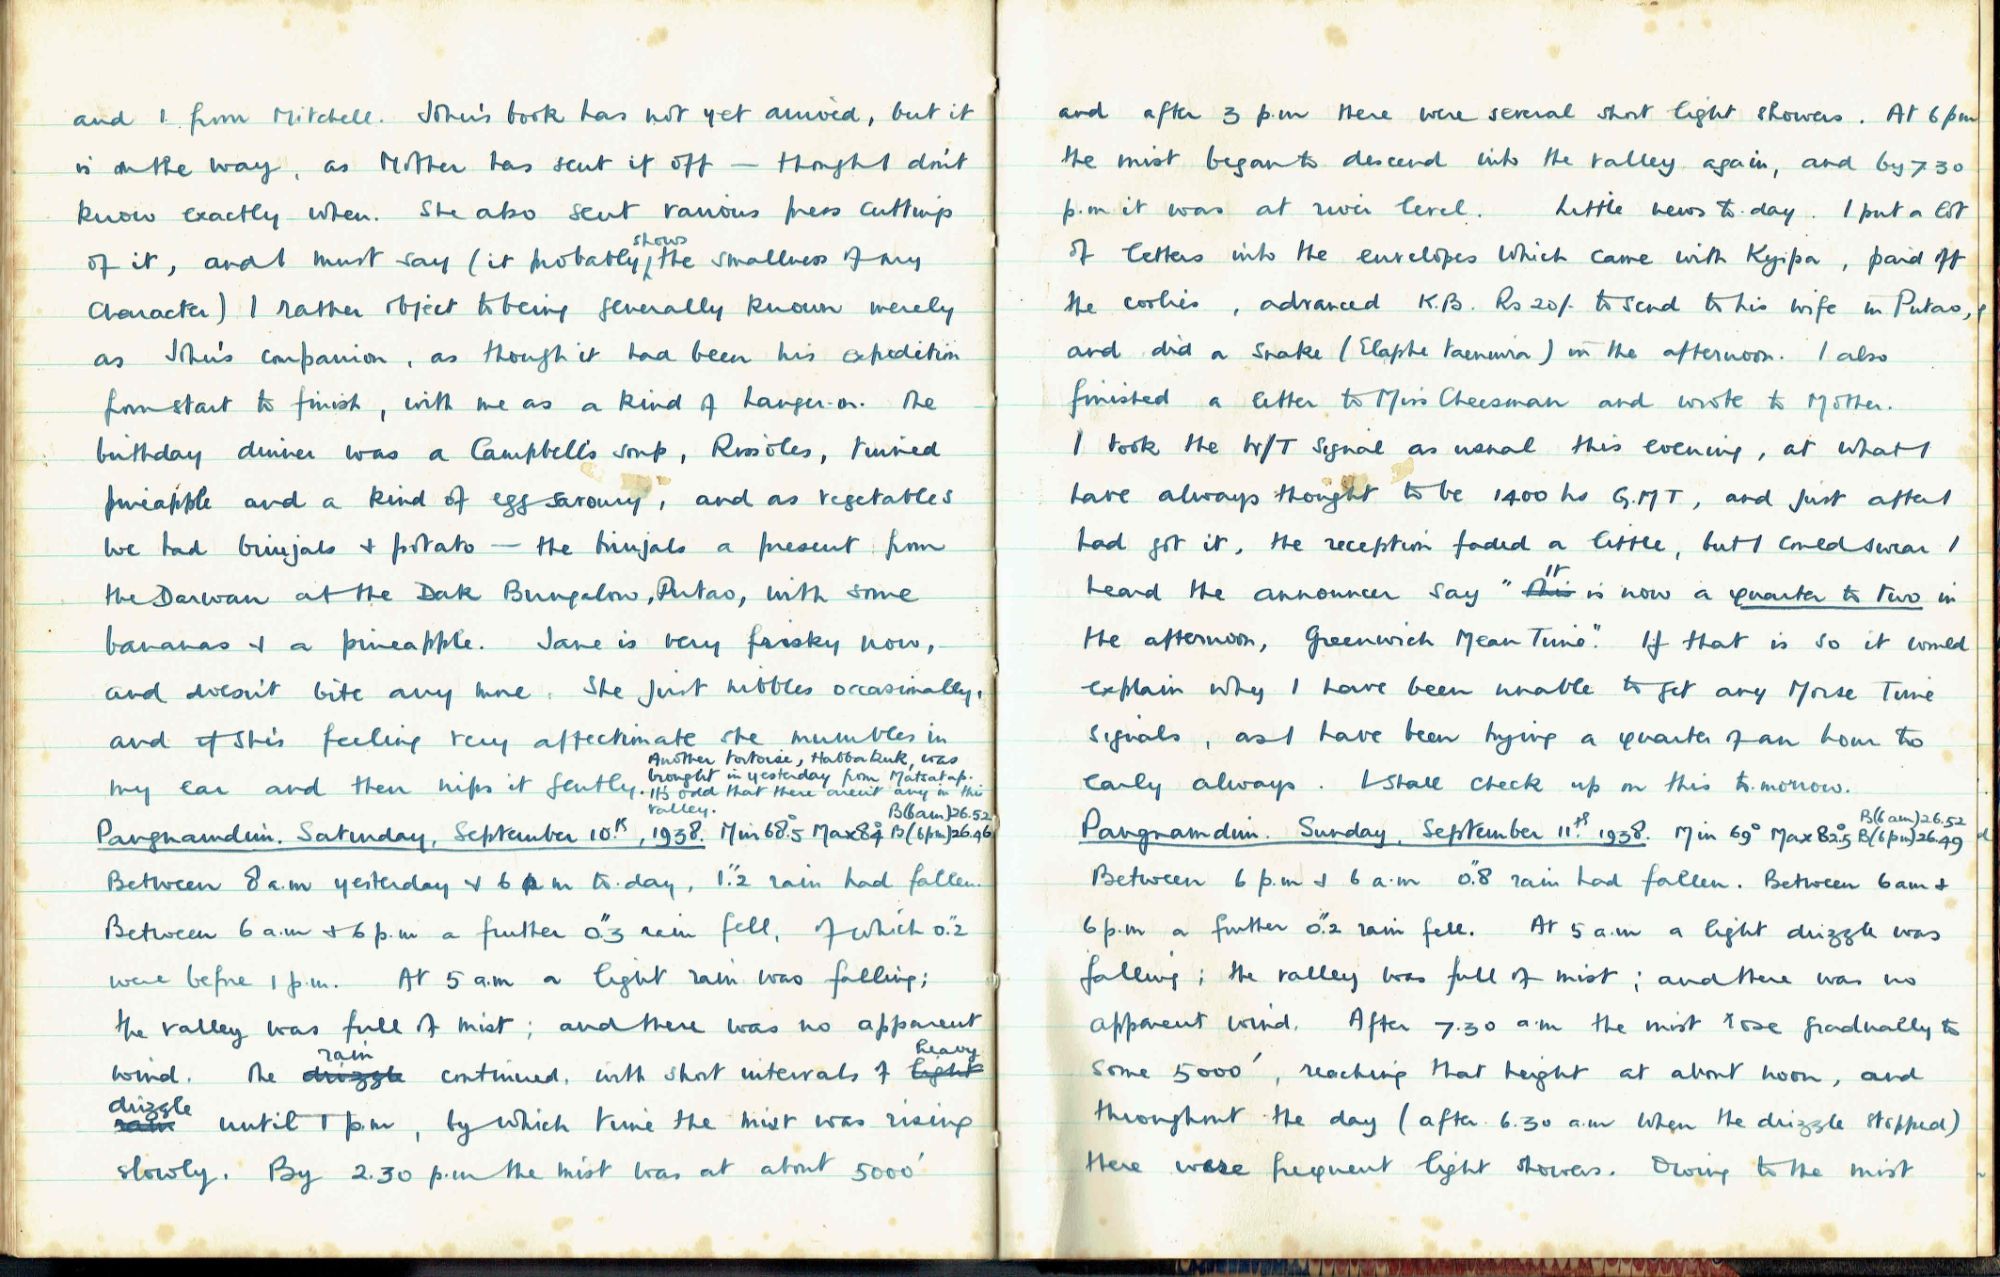 and 1 from Mitchell. John's book has not yet arrived, but it
is on the way, as Mother has sent it off — though I don't
know exactly when. She also sent various press cuttings
of it, and I must say (it probably shows the smallness of my
character) I rather object to being generally known merely
as John's companion, as though it had been his expedition
from start to finish, with me as a kind of hanger-on. The
birthday dinner was a Campbell's soup, Rissoles, tinned
pineapple and a kind of egg savoury, and as vegetables
we had brinjals & potato — the brinjals a present from
the Darwan at the Dak Bungalow, Putao, with some
bananas & a pineapple. Jane is very frisky now,
and doesn't bite any more. She just nibbles occasionally,
and if she's feeling very affectionate she mumbles in
my ear and then nips it gently. Another tortoise, Habbakuk, was
brought in yesterday from Matsatap.
It's odd that there aren't any in this
valley.
Pangnamdim. Saturday, September 10th, 1938. Min 68°.5 Max 84° B(6am) 26.52 B(6pm) 26.46
Between 8 a.m yesterday & 6 a m to-day, 1".2 rain had fallen.
Between 6 a.m & 6 p.m a further 0".3 rain fell, of which 0".2
were before 1 p.m. At 5 a.m a light rain was falling;
the valley was full of mist; and there was no apparent
wind. The drizzle rain continued, with short intervals of light heavy
rain drizzle until 1 p.m, by which time the mist was rising
slowly. By 2.30 p.m the mist was at about 5000'
and after 3 p.m there were several short light showers. At 6 pm
the mist began to descend into the valley again, and by 7.30
p.m it was at river level. Little news to-day. I put a lot
of letters into the envelopes which came with Kyipa, paid off
the coolies, advanced K.B. Rs 20/- to send to his wife in Putao,
and did a snake (Elaphe taeniura) in the afternoon. I also
finished a letter to Miss Cheesman and wrote to Mother.
I took the W/T signal as usual this evening, at what I
have always thought to be 1400 hs G.M.T, and just after I
had got it, the reception faded a little, but I could swear I
heard the announcer say "This it is now a quarter to two in
the afternoon, Greenwich Mean Time". If that is so it would
explain why I have been unable to get any Morse Time
signals, as I have been trying a quarter of an hour to
early always. I shall check up on this to-morrow.
Pangnamdim. Sunday, September 11th 1938. Min 69° Max 82°.5 B(6am) 26.52 B(6pm) 26.49
Between 6 p.m & 6 a.m 0".8 rain had fallen. Between 6 am &
6 p.m a further 0".2 rain fell. At 5 a.m a light drizzle was
falling; the valley was full of mist; and there was no
apparent wind. After 7.30 a.m the mist rose gradually to
some 5000', reaching that height at about noon, and
throughout the day (after 6.30 a.m when the drizzle stopped)
there were frequent light showers. Owing to the mist